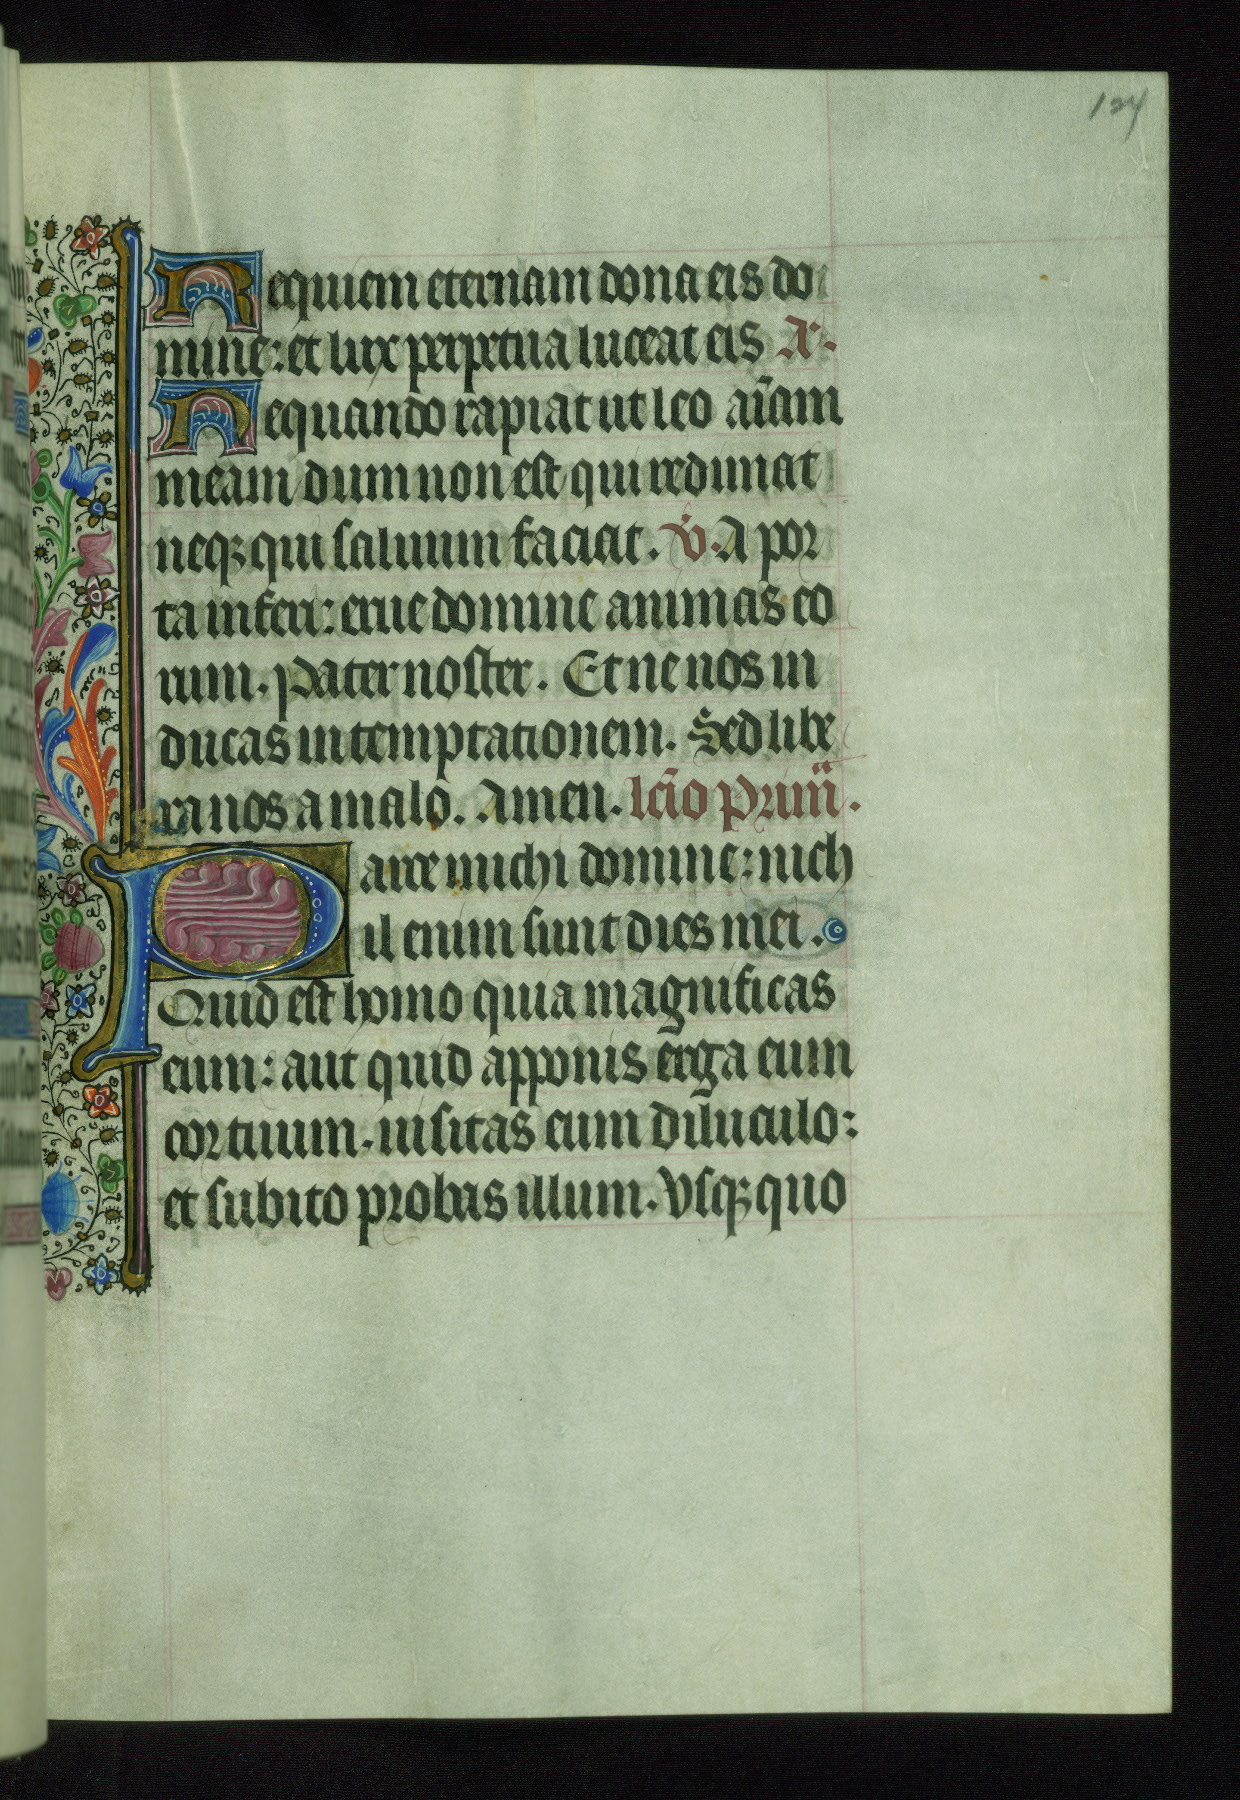 124
Requiem eternam dona eis do
mine: et lux perpetua luceat eis A.
Nequando rapiat ut leo aīam
meam dum non est qui redimat
neqꝫ qui saluum faciat. V. A por
ta inferi: erue domine animas eo
rum. Pater noster. Et ne nos in
ducas in temptationem. Sed libe
ra nos a malo. Amen. lc̄io prim̄.
Parce michi domine: nich
il enim sunt dies mei.
Quid est homo quia magnificas
eum: aut quid apponis erga eum
cor tuum. uisitas eum diluculo:
et subito probas illum. Vsqꝫ quo